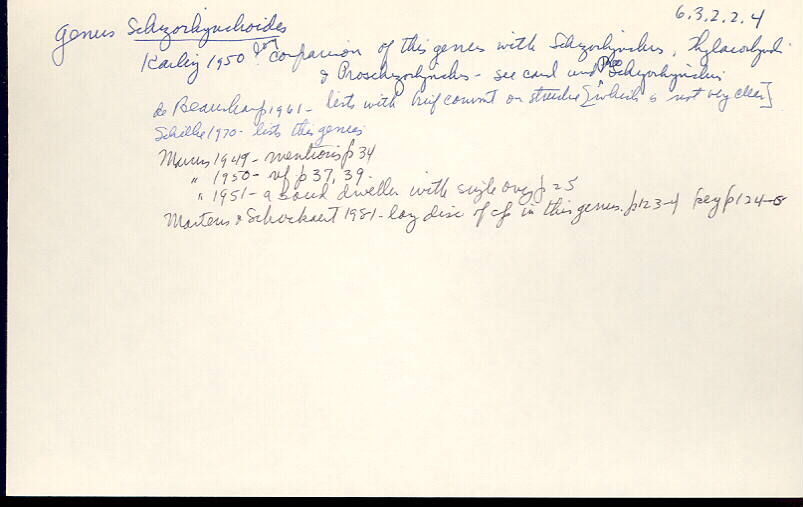 6.3.2.2.4
Genus Schizorhynchoides
Karling 1950 for comparison of this genus with Schizorhynchus, Thylacorhynchus
& Proschizorhynchus - see card under Proschizorhynchus
de Beauchamp 1961 - lists with brief comment on structure [which is not very clear]
Schilke 1970 - lists this genus
Marcus 1949 - mentions p 34
" 1950 - ref p 37, 39.
" 1951 - a sand dweller with single ovary p 25
Martens & Schockaert 1981 - disc of in this genus. p123-4 key p124-5